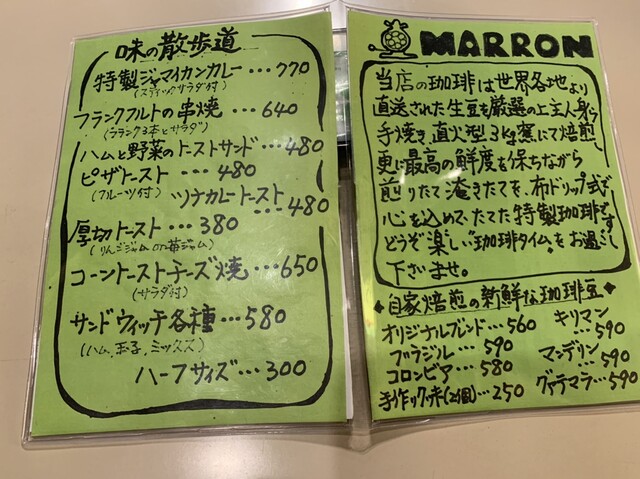 味の散歩道
特製ジャマイカンカレー…770
(スティックサラダ付)
フランクフルトの串焼…640
(フランク3本とサラダ)
ハムと野菜のトーストサンド…480
ピザトースト…480
(フルーツ付)
ツナカレートースト…480
厚切トースト…380
(りんごジャム or 苺ジャム)
コーントーストチーズ焼…650
(サラダ付)
サンドウィッチ各種…580
(ハム、玉子、ミックス)
ハーフサイズ…300
MARRON
当店の珈琲は世界各地より
直送された生豆を厳選の上主人自ら
手焼き、直火型3kg窯にて焙煎し
更に最高の鮮度を保ちながら
煎りたて淹きたてを、布ドリップ式で
心を込めてたてた特製珈琲です
どうぞ楽しい珈琲タイムをお過ごし
下さいませ。
自家焙煎の新鮮な珈琲豆
オリジナルブレンド…560
ブラジル…590
コロンビア…580
キリマン…590
マンデリン…590
グァテマラ…590